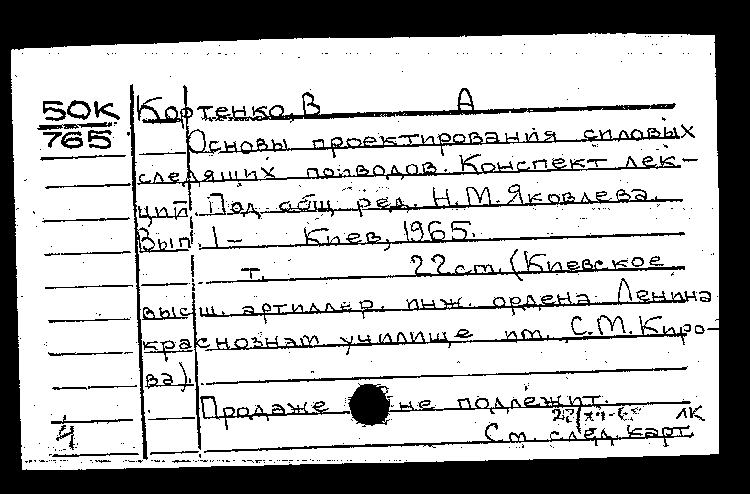 50К Кортенко, В А
765 Основы проектирования силовых
следящих приводов. Конспект лек-
ций. Под общ. ред. Н.М. Яковлева.
Вып. 1- Киев, 1965.
т. 22 см. (Киевское
высш. артиллер. инж. ордена Ленина
краснознам училище им. С.М. Киро-
ва).
Продаже не подлежит.
ЛК
4 См. след. карт.